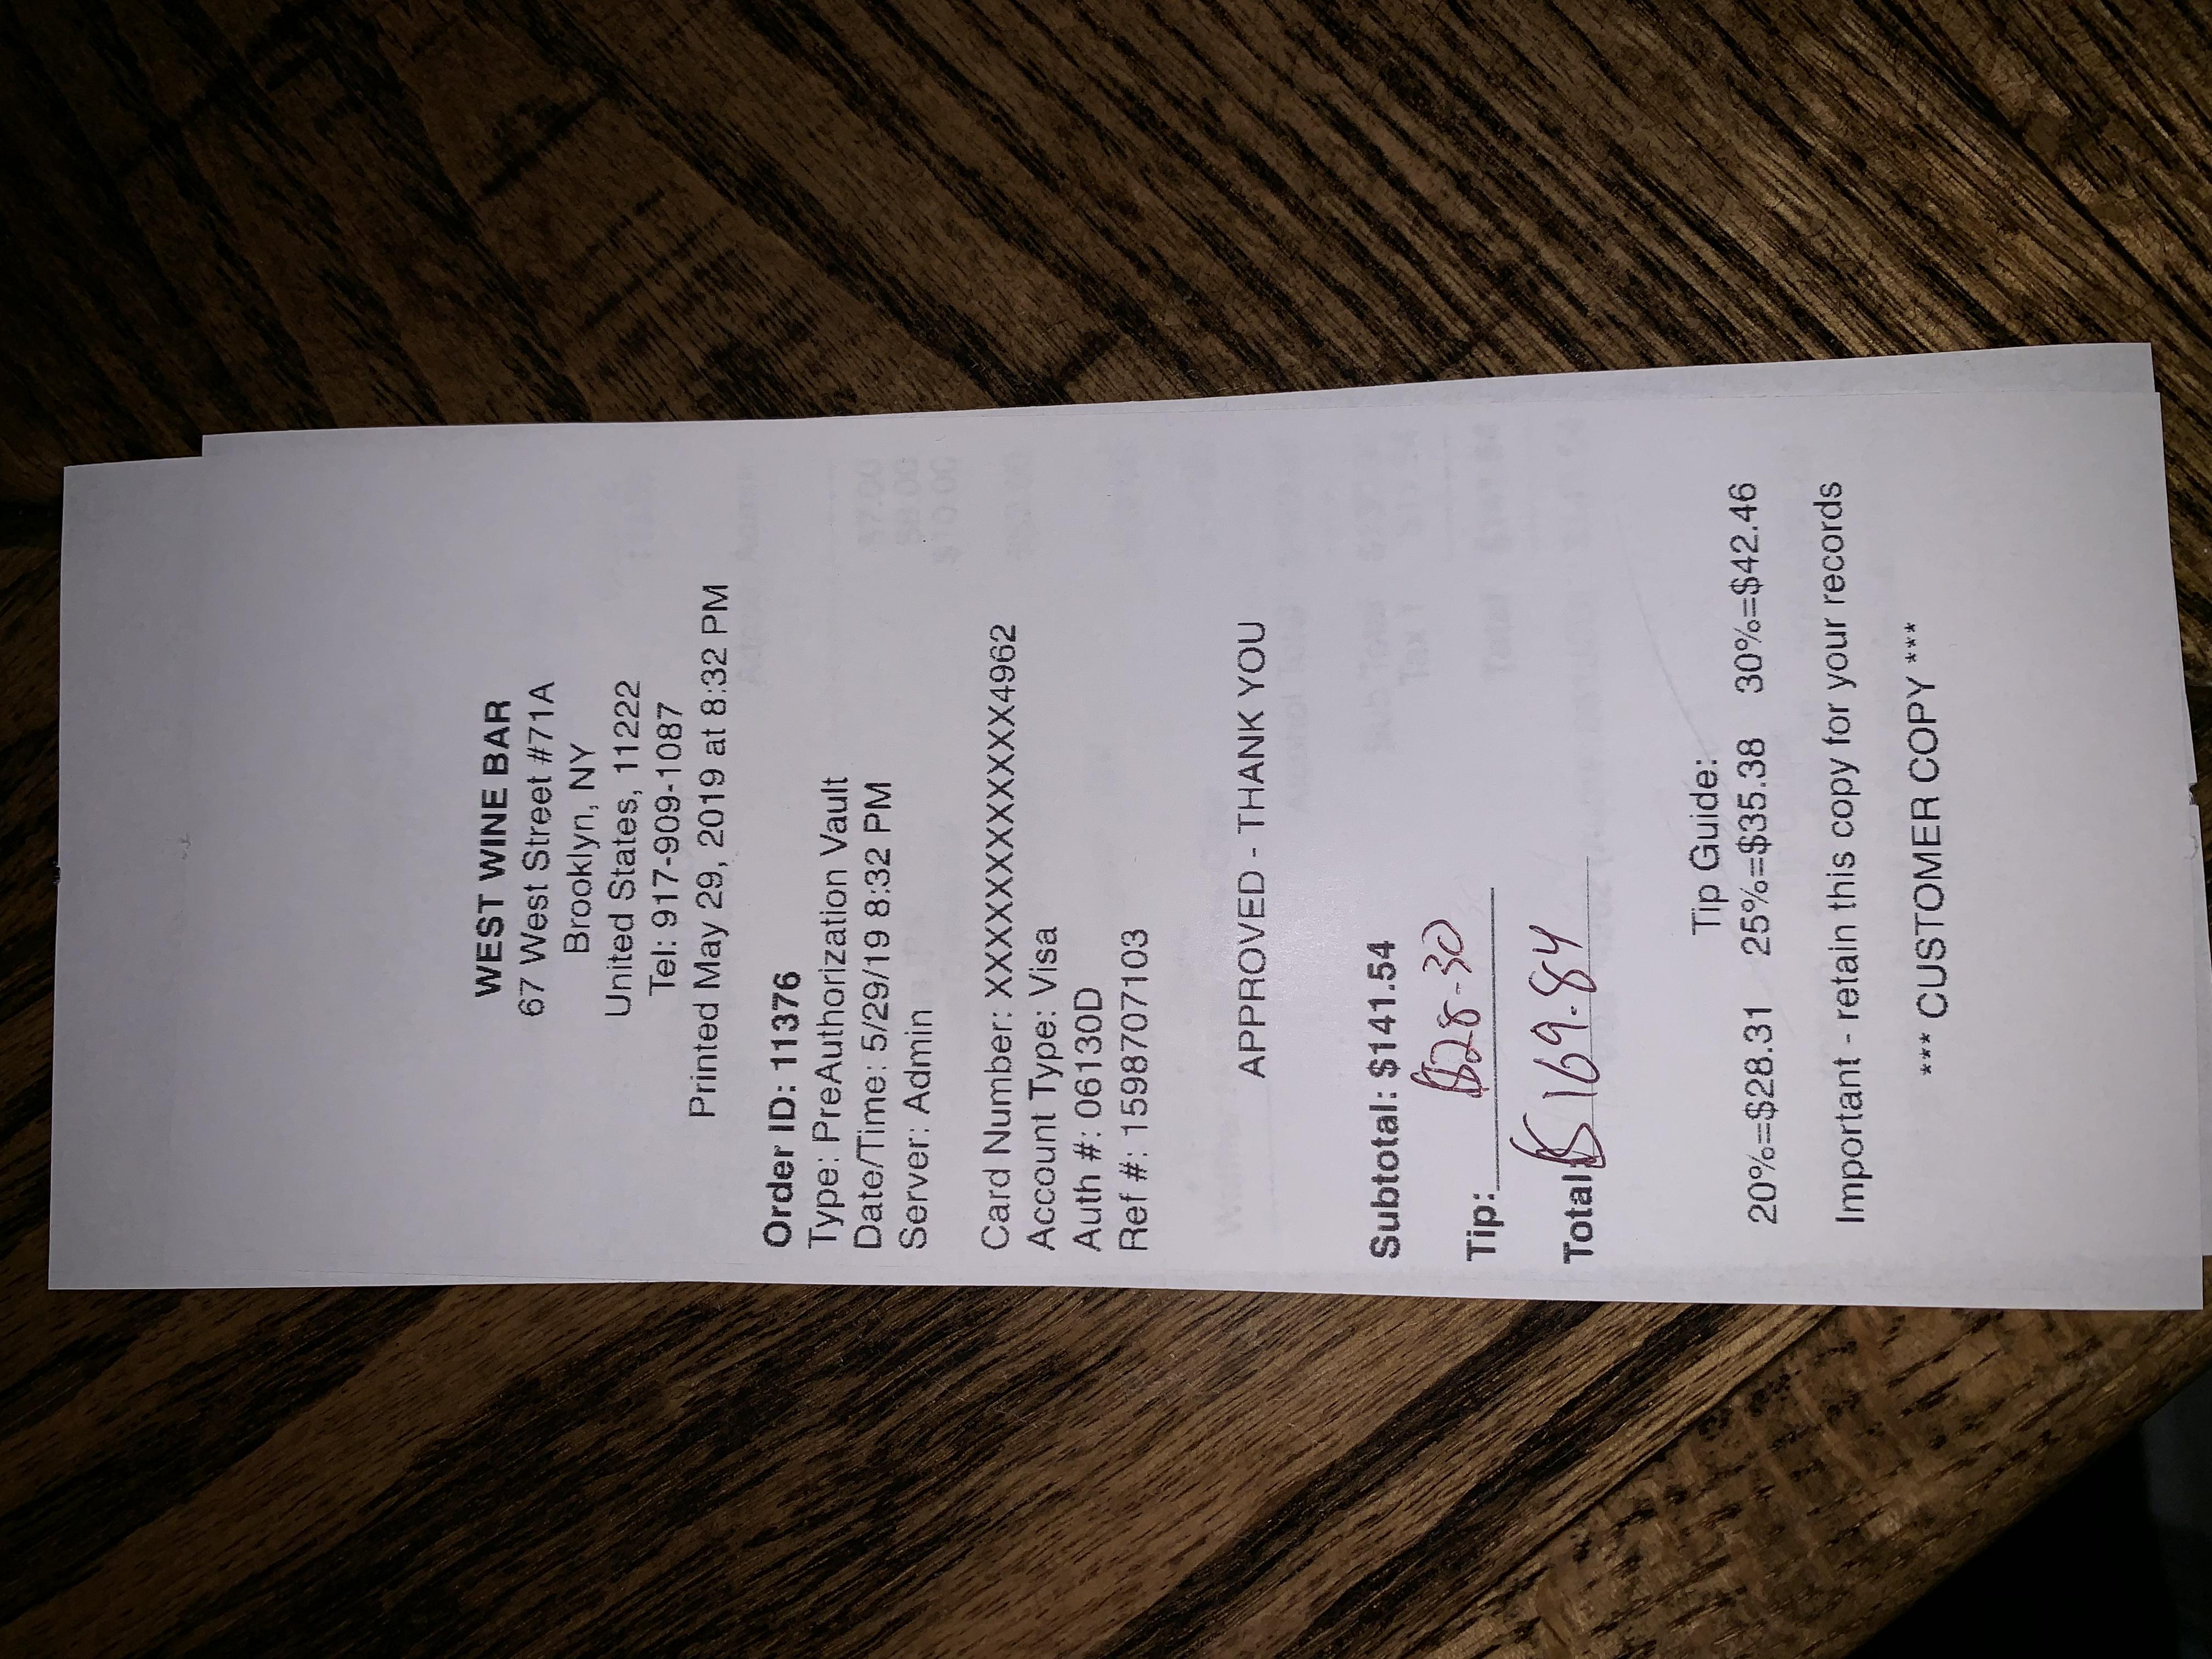 WEST WINE BAR
67 West Street #71A
Brooklyn, NY
United States, 11222
Tel: 917-909-1087
Printed May 29, 2019 at 8:32 PM
Order ID: 11376
Type: PreAuthorization Vault
Date/Time: 5/29/19 8:32 PM
Server: Admin
Card Number: XXXXXXXXXXXXXXX4962
Account Type: Visa
Auth #: 06130D
Ref #: 1598707103
APPROVED - THANK YOU
Subtotal: $141.54
Tip: $28-30
Total $169.84
Tip Guide:
20%=$28.31 25%=$35.38 30%=$42.46
Important - retain this copy for your records
*** CUSTOMER COPY ***